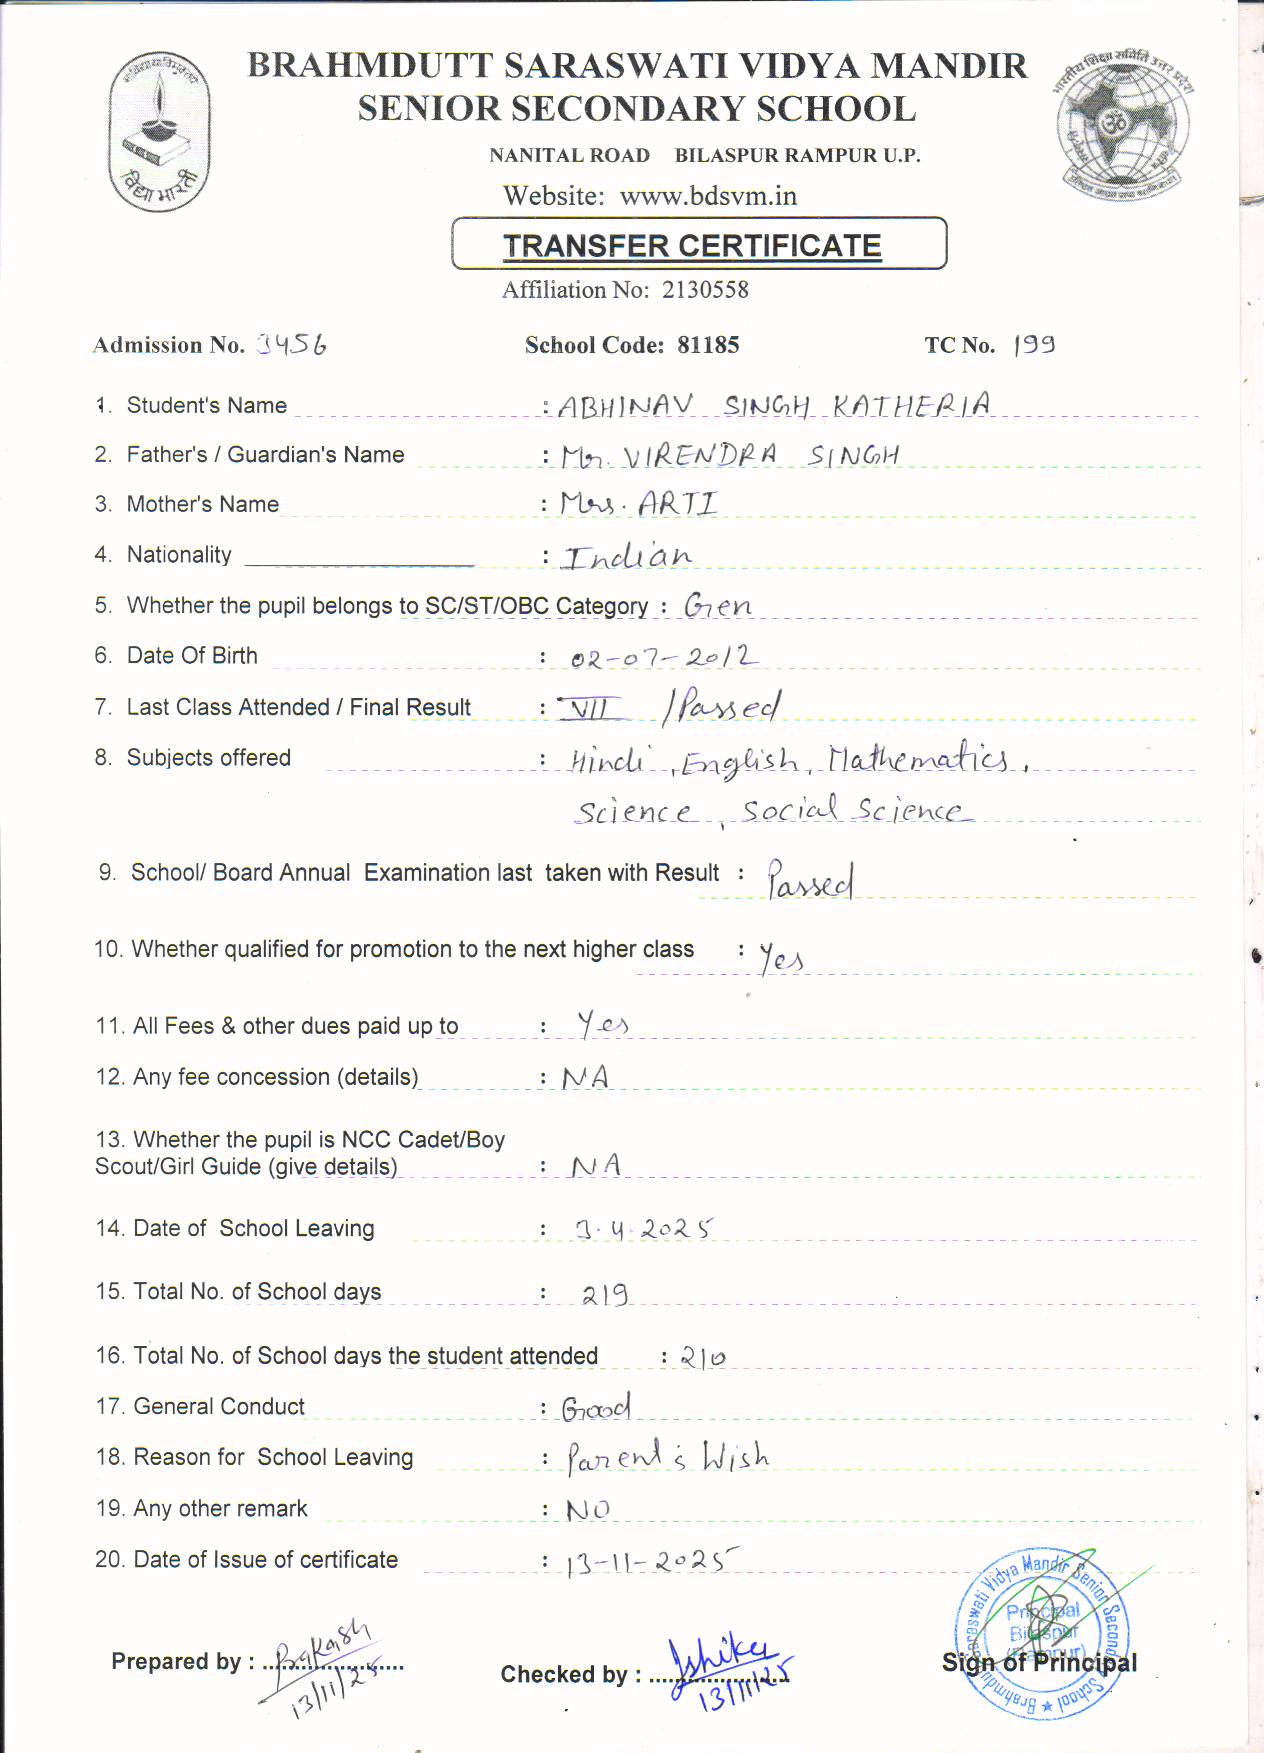 BRAHMDUTT SARASWATI VIDYA MANDIR
SENIOR SECONDARY SCHOOL
NANITAL ROAD BILASPUR RAMPUR U.P.
Website: www.bdsvm.in
विद्या भारती
भारतीय शिक्षा समिति उत्तर प्रदेश
TRANSFER CERTIFICATE
Affiliation No: 2130558
Admission No. 3456 School Code: 81185 TC No. 199
1. Student's Name : ABHINAV SINGH KATHERIA
2. Father's / Guardian's Name : Mr. VIRENDRA SINGH
3. Mother's Name : Mrs. ARTI
4. Nationality : Indian
5. Whether the pupil belongs to SC/ST/OBC Category : Gen
6. Date Of Birth : 02-07-2012
7. Last Class Attended / Final Result : VII /Passed
8. Subjects offered : Hindi, English, Mathematics,
Science, Social Science
9. School/ Board Annual Examination last taken with Result : Passed
10. Whether qualified for promotion to the next higher class : Yes
11. All Fees & other dues paid up to : Yes
12. Any fee concession (details) : NA
13. Whether the pupil is NCC Cadet/Boy
Scout/Girl Guide (give details) : NA
14. Date of School Leaving : 3.4.2025
15. Total No. of School days : 219
16. Total No. of School days the student attended : 210
17. General Conduct : Good
18. Reason for School Leaving : Parent's Wish
19. Any other remark : NO
20. Date of Issue of certificate : 13-11-2025
Prepared by : 13/11/25
Checked by : Ishika 13/11/25
Sign of Principal
Principal
Bilaspur
(Rampur)
Brahmdutt Saraswati Vidya Mandir Senior Secondary School